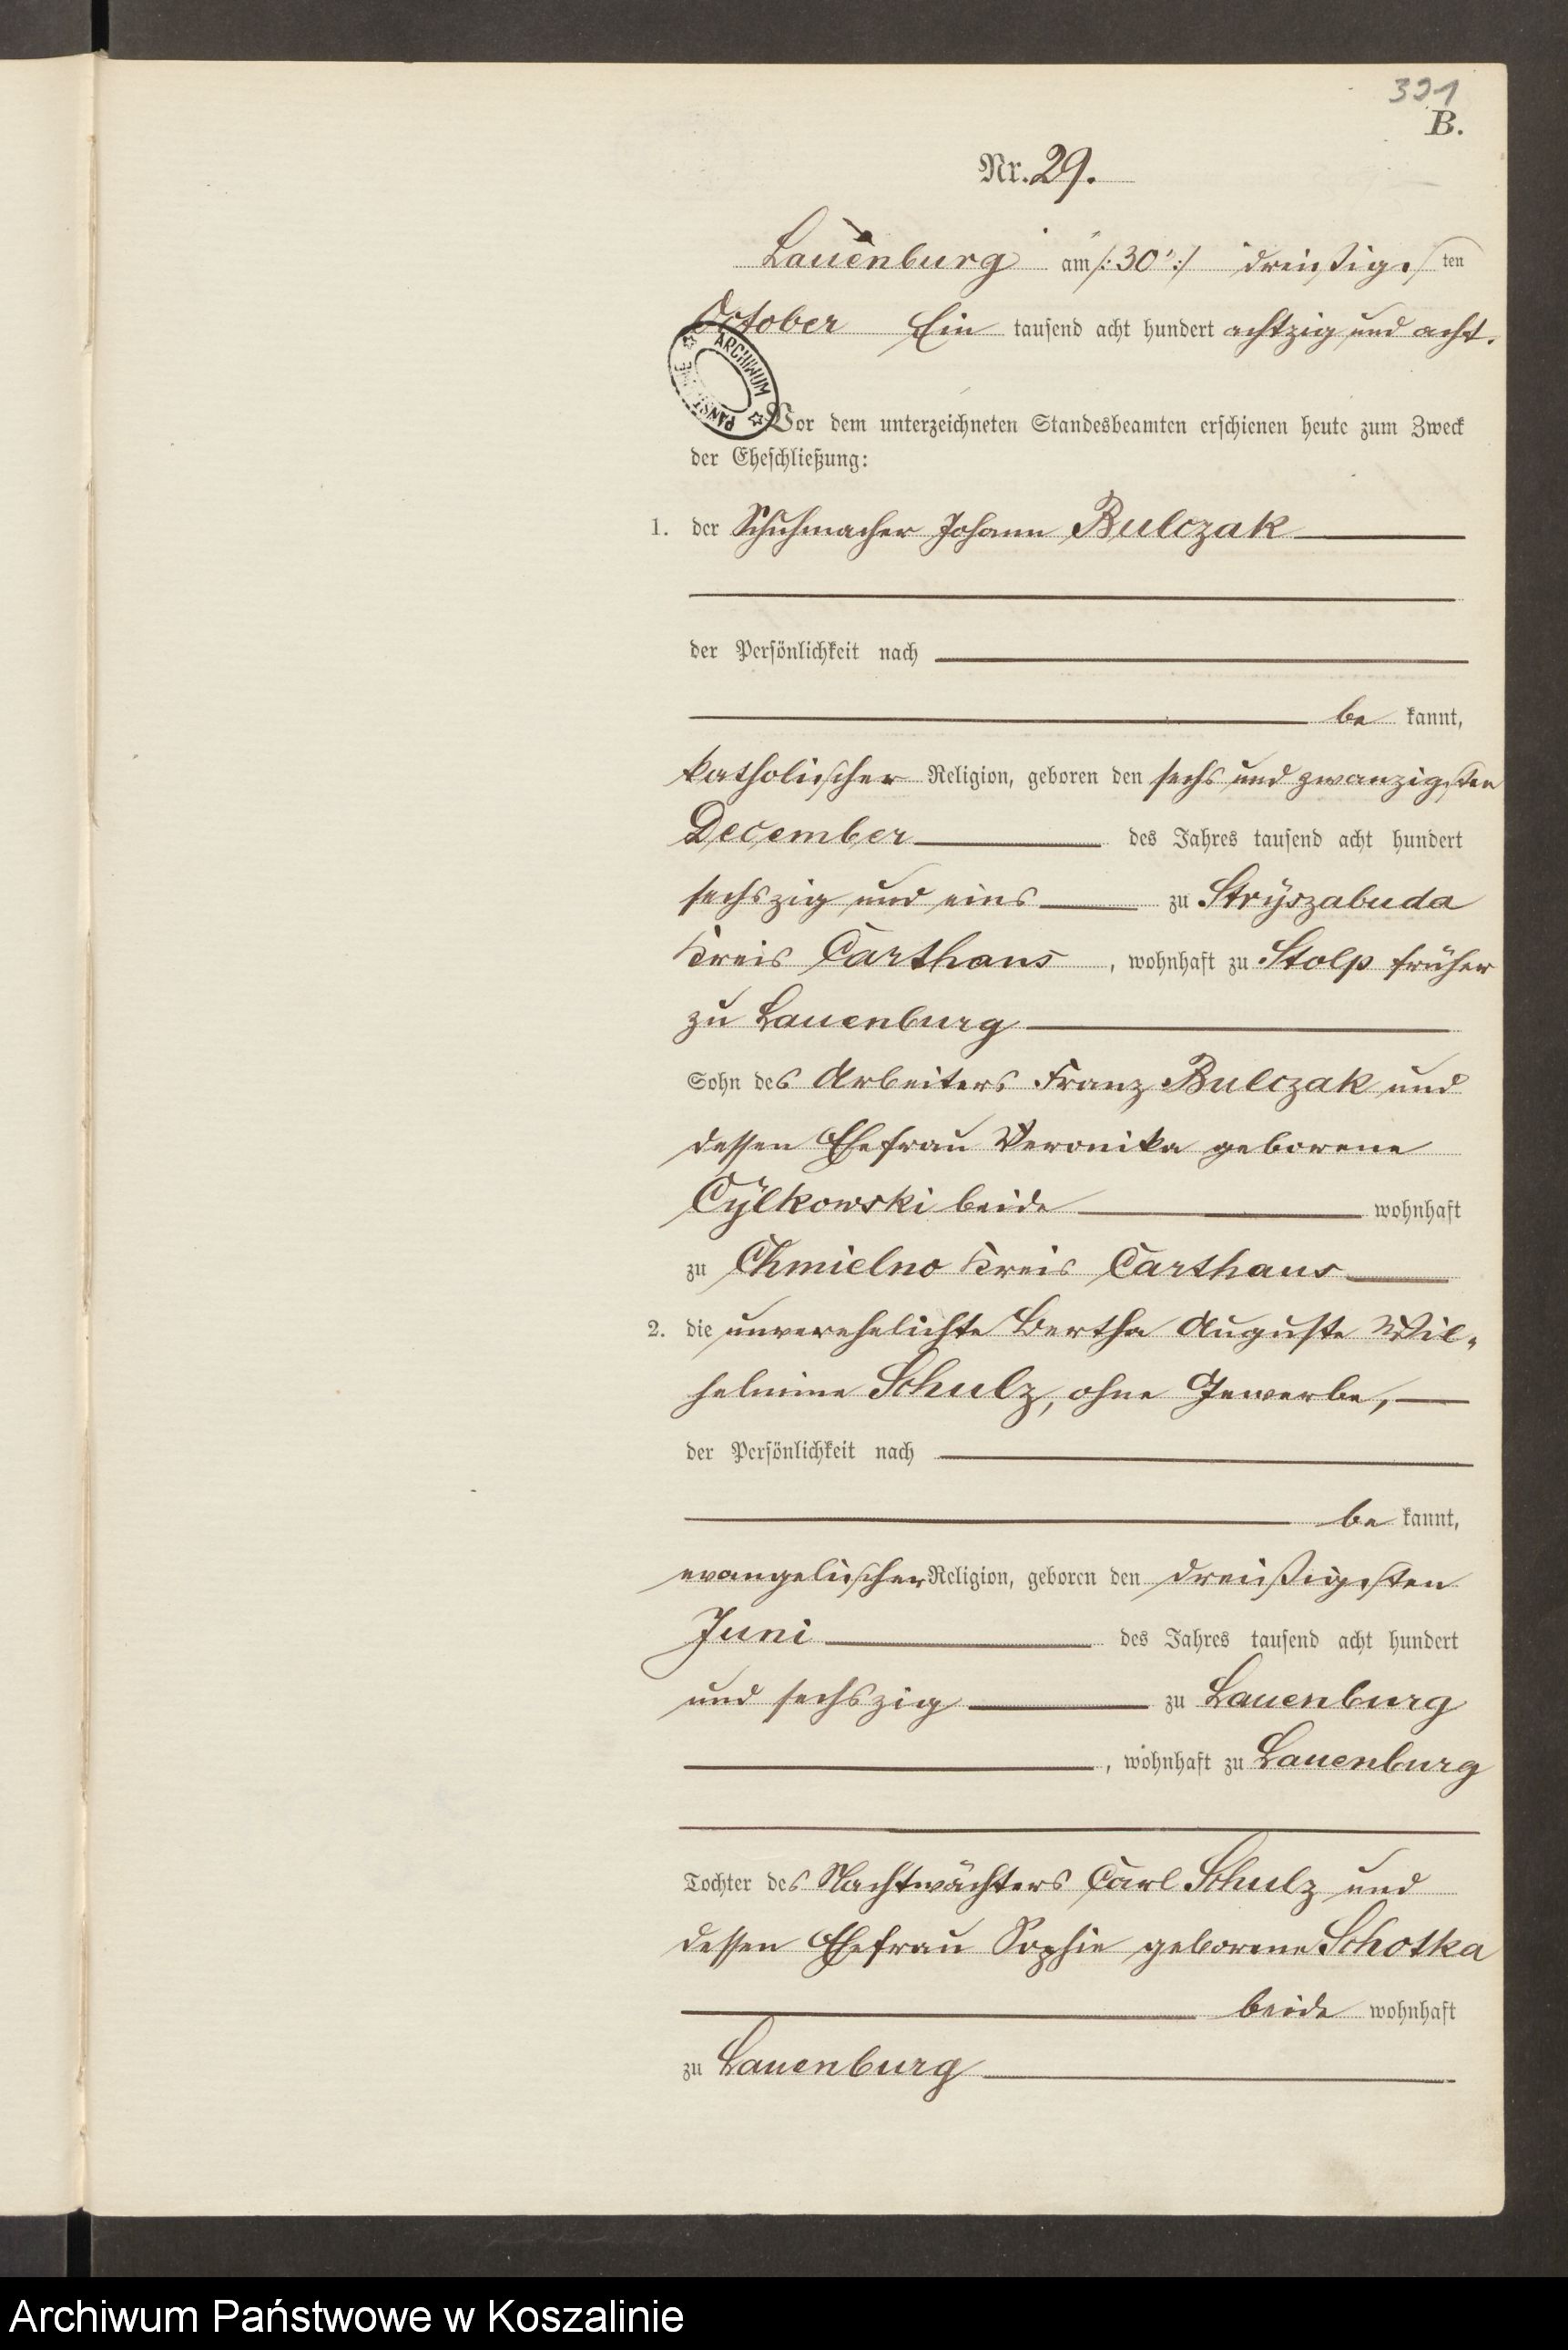 391
B.
Nr. 29.
Lauenburg am /: 30' :/ dreißigsten
October Ein tausend acht hundert achtzig und acht.
ARCHIWUM PAŃSTW
Vor dem unterzeichneten Standesbeamten erschienen heute zum Zweck
der Eheschließung:
1. der Schuhmacher Johann Bulczak
der Persönlichkeit nach
be kannt,
katholischer Religion, geboren den sechs und zwanzigsten
December des Jahres tausend acht hundert
sechszig und eins zu Stryszabuda
Kreis Carthaus, wohnhaft zu Stolp früher
zu Lauenburg
Sohn des Arbeiters Franz Bulczak und
dessen Ehefrau Veronika geborene
Cÿlkowski beide wohnhaft
zu Chmielno Kreis Carthaus
2. die unverehelichte Bertha Auguste Wil-
helmine Schulz, ohne Gewerbe,
der Persönlichkeit nach
be kannt,
evangelischer Religion, geboren den dreißigsten
Juni des Jahres tausend acht hundert
und sechszig zu Lauenburg
, wohnhaft zu Lauenburg
Tochter des Nachtwächters Carl Schulz und
dessen Ehefrau Sophie geborene Schotka
beide wohnhaft
zu Lauenburg
Archiwum Państwowe w Koszalinie